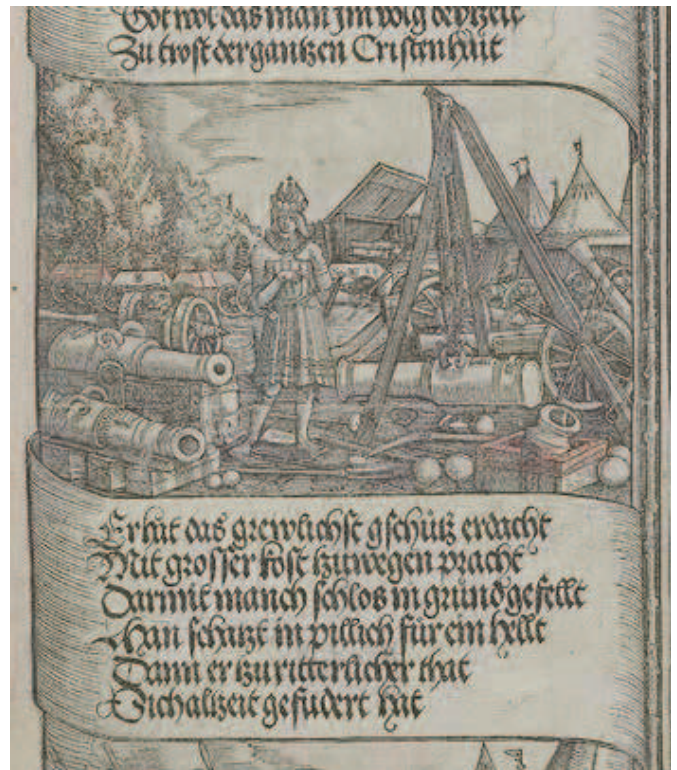 Got wol das man jm volg deytzeit
Zu trost der gantzen Cristenhait
Er hat das grewlichst gschütz erdacht
Mit grosser kost tzuwegen pracht
Darmit manch schlos in grund gefellt
Man schatzt in pillich für ein hellt
Dann er tzu ritterlicher that
Sich altzeit gefudert hat